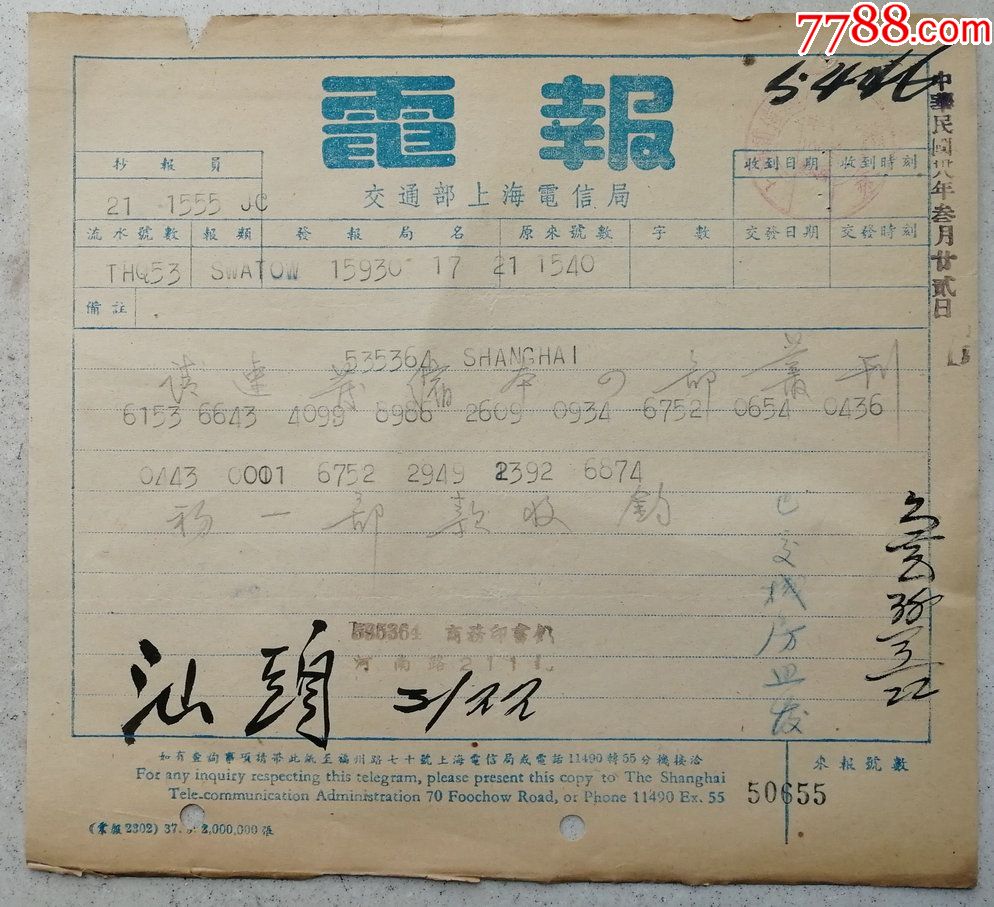 7788.com
5.4
電報
中華民國卅八年叁月廿貳日
抄報員
收到日期 收到時刻
交通部上海電信局
21 1555 JC
流水號數 報類 發報局名 原來號數 字數 交發日期 交發時刻
THQ53 SWATOW 15930 17 21 1540
備註
535364 SHANGHAI
請速發備本四部叢刊
6153 6643 4099 8986 2609 0934 6752 0654 0436
0443 0001 6752 2949 2392 6874
初一部款收
已交
535364 商務印書館
河南路211
汕頭 3/22
如有查詢事項携帶此紙至福州路七十號上海電信局或電話11490轉55分機接洽
來報號數
For any inquiry respecting this telegram, please present this copy to The Shanghai
Tele-communication Administration 70 Foochow Road, or Phone 11490 Ex. 55
50655
(業報2302) 37. 9. 2,000,000張